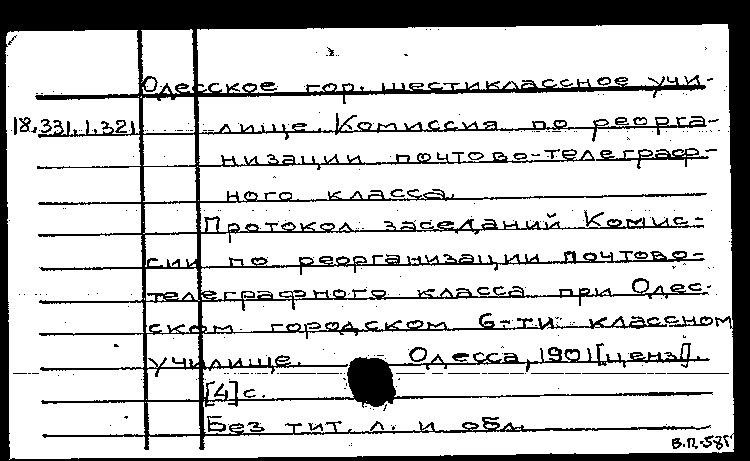 Одесское гор. шестиклассное учи-
18.331.1.321 лище. Комиссия по реорга-
низации почтово-телеграф-
ного класса.
Протокол заседаний Комис-
сии по реорганизации почтово-
телеграфного класса при Одес-
ском городском 6-ти классном
училище. Одесса, 1901 [ценз].
[4] с.
Без тит. л. и обл.